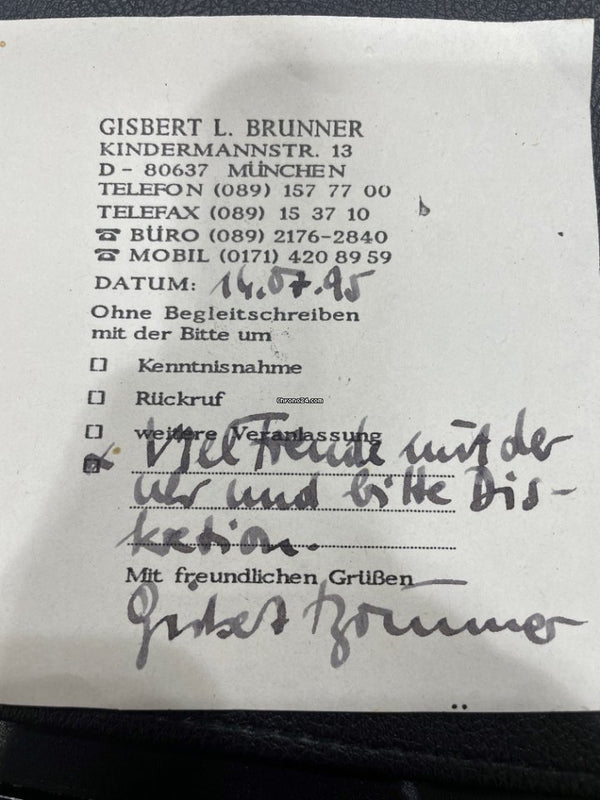 GISBERT L. BRUNNER
KINDERMANNSTR. 13
D - 80637 MÜNCHEN
TELEFON (089) 157 77 00
TELEFAX (089) 15 37 10
☎ BÜRO (089) 2176-2840
☎ MOBIL (0171) 420 89 59
DATUM: 14.07.95
Ohne Begleitschreiben
mit der Bitte um
[] Kenntnisnahme
Chrono24.com
[] Rückruf
[] weitere Veranlassung
Viel Freude mit der
Uhr und bitte Dis-
kretion.
Mit freundlichen Grüßen
Gisbert Brunner